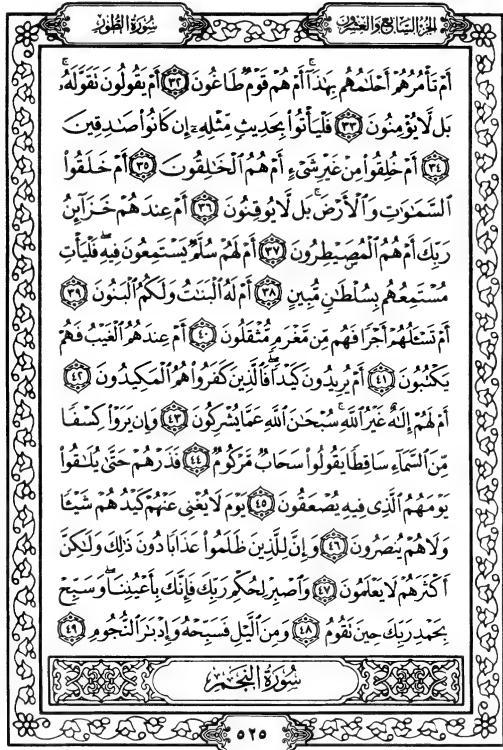 سورة الطور
الجزء السابع والعشرون
أَمْ تَأْمُرُهُمْ أَحْلَـٰمُهُم بِهَـٰذَآ ۚ أَمْ هُمْ قَوْمٌ طَاغُونَ ٣٢ أَمْ يَقُولُونَ تَقَوَّلَهُۥ ۚ
بَل لَّا يُؤْمِنُونَ ٣٣ فَلْيَأْتُوا۟ بِحَدِيثٍ مِّثْلِهِۦٓ إِن كَانُوا۟ صَـٰدِقِينَ
٣٤ أَمْ خُلِقُوا۟ مِنْ غَيْرِ شَىْءٍ أَمْ هُمُ ٱلْخَـٰلِقُونَ ٣٥ أَمْ خَلَقُوا۟
ٱلسَّمَـٰوَٰتِ وَٱلْأَرْضَ ۚ بَل لَّا يُوقِنُونَ ٣٦ أَمْ عِندَهُمْ خَزَآئِنُ
رَبِّكَ أَمْ هُمُ ٱلْمُصَۣيْطِرُونَ ٣٧ أَمْ لَهُمْ سُلَّمٌ يَسْتَمِعُونَ فِيهِ ۖ فَلْيَأْتِ
مُسْتَمِعُهُم بِسُلْطَـٰنٍ مُّبِينٍ ٣٨ أَمْ لَهُ ٱلْبَنَـٰتُ وَلَكُمُ ٱلْبَنُونَ ٣٩
أَمْ تَسْـَٔلُهُمْ أَجْرًا فَهُم مِّن مَّغْرَمٍ مُّثْقَلُونَ ٤٠ أَمْ عِندَهُمُ ٱلْغَيْبُ فَهُمْ
يَكْتُبُونَ ٤١ أَمْ يُرِيدُونَ كَيْدًا ۖ فَٱلَّذِينَ كَفَرُوا۟ هُمُ ٱلْمَكِيدُونَ ٤٢
أَمْ لَهُمْ إِلَـٰهٌ غَيْرُ ٱللَّهِ ۚ سُبْحَـٰنَ ٱللَّهِ عَمَّا يُشْرِكُونَ ٤٣ وَإِن يَرَوْا۟ كِسْفًا
مِّنَ ٱلسَّمَآءِ سَاقِطًا يَقُولُوا۟ سَحَابٌ مَّرْكُومٌ ٤٤ فَذَرْهُمْ حَتَّىٰ يُلَـٰقُوا۟
يَوْمَهُمُ ٱلَّذِى فِيهِ يُصْعَقُونَ ٤٥ يَوْمَ لَا يُغْنِى عَنْهُمْ كَيْدُهُمْ شَيْـًٔا
وَلَا هُمْ يُنصَرُونَ ٤٦ وَإِنَّ لِلَّذِينَ ظَلَمُوا۟ عَذَابًا دُونَ ذَٰلِكَ وَلَـٰكِنَّ
أَكْثَرَهُمْ لَا يَعْلَمُونَ ٤٧ وَٱصْبِرْ لِحُكْمِ رَبِّكَ فَإِنَّكَ بِأَعْيُنِنَا ۖ وَسَبِّحْ
بِحَمْدِ رَبِّكَ حِينَ تَقُومُ ٤٨ وَمِنَ ٱلَّيْلِ فَسَبِّحْهُ وَإِدْبَـٰرَ ٱلنُّجُومِ ٤٩
سورة النجم
٥٢٥